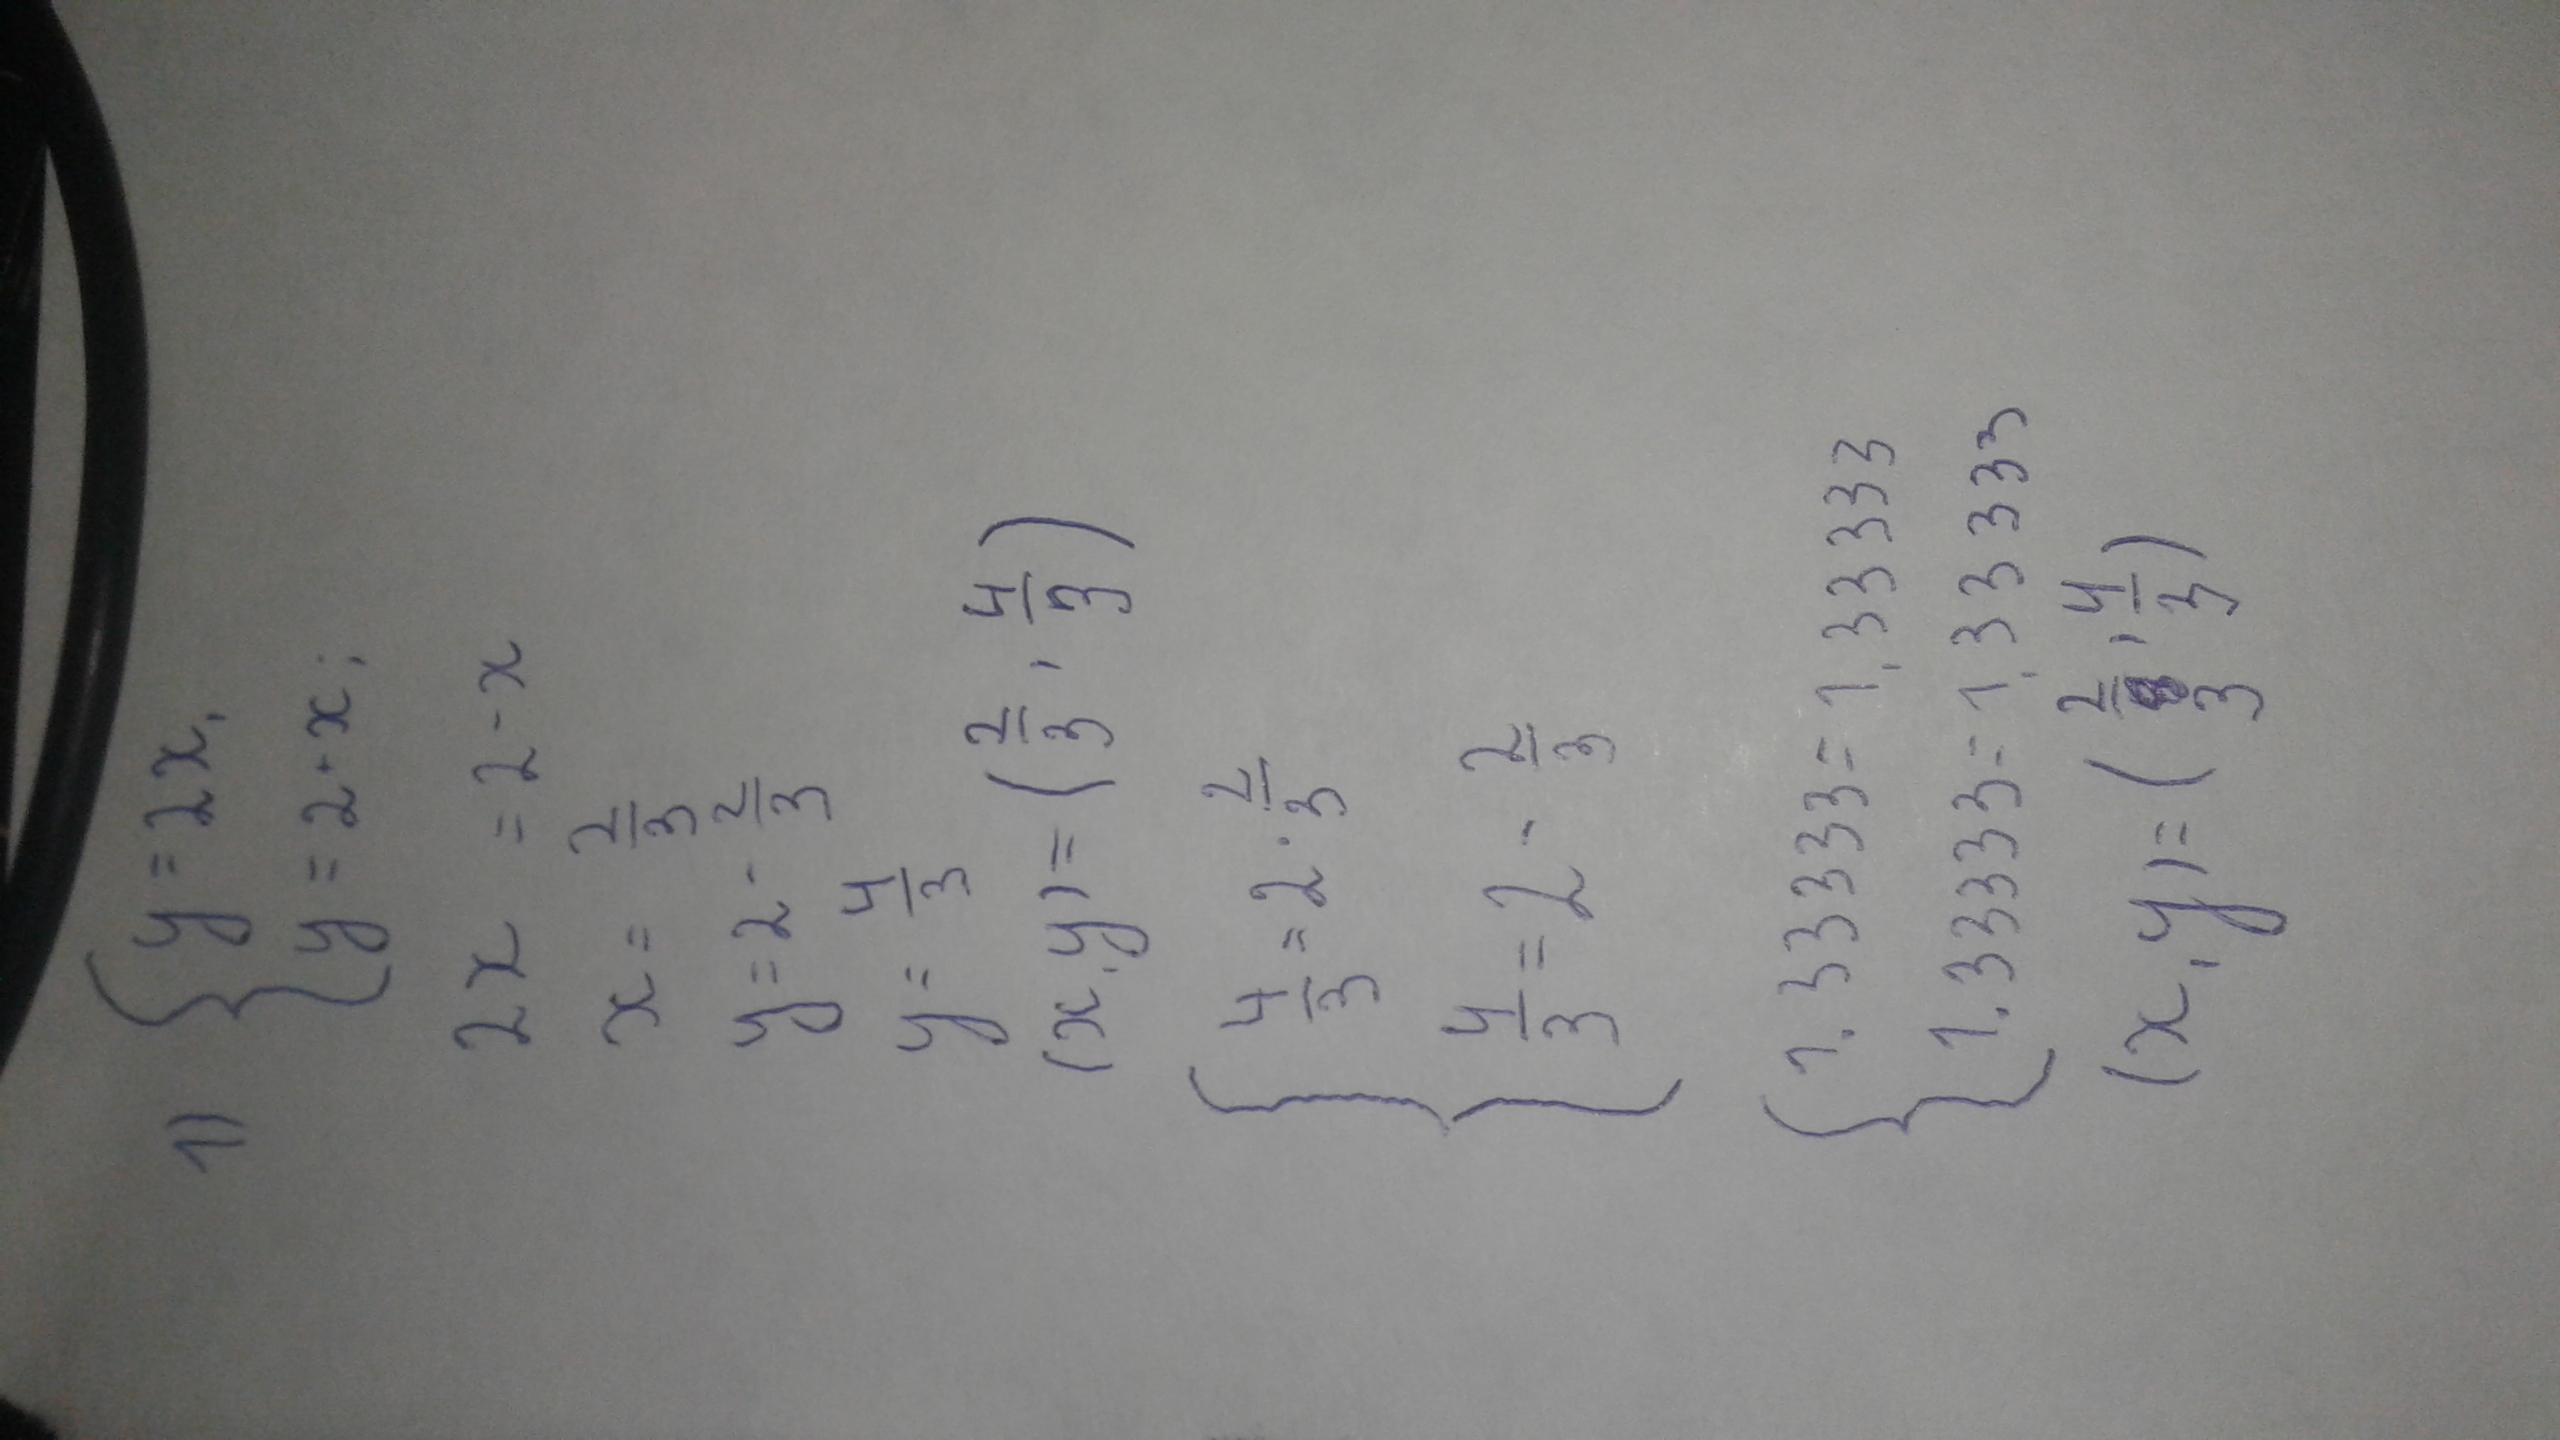 1) { y = 2x,
y = 2 - x;
2x = 2 - x
x = 2/3
y = 2 · 2/3
y = 4/3
(x, y) = (2/3, 4/3)
{ 4/3 = 2 · 2/3
4/3 = 2 - 2/3
{ 1.33333 = 1.33333
1.33333 = 1.33333
(x, y) = (2/3, 4/3)